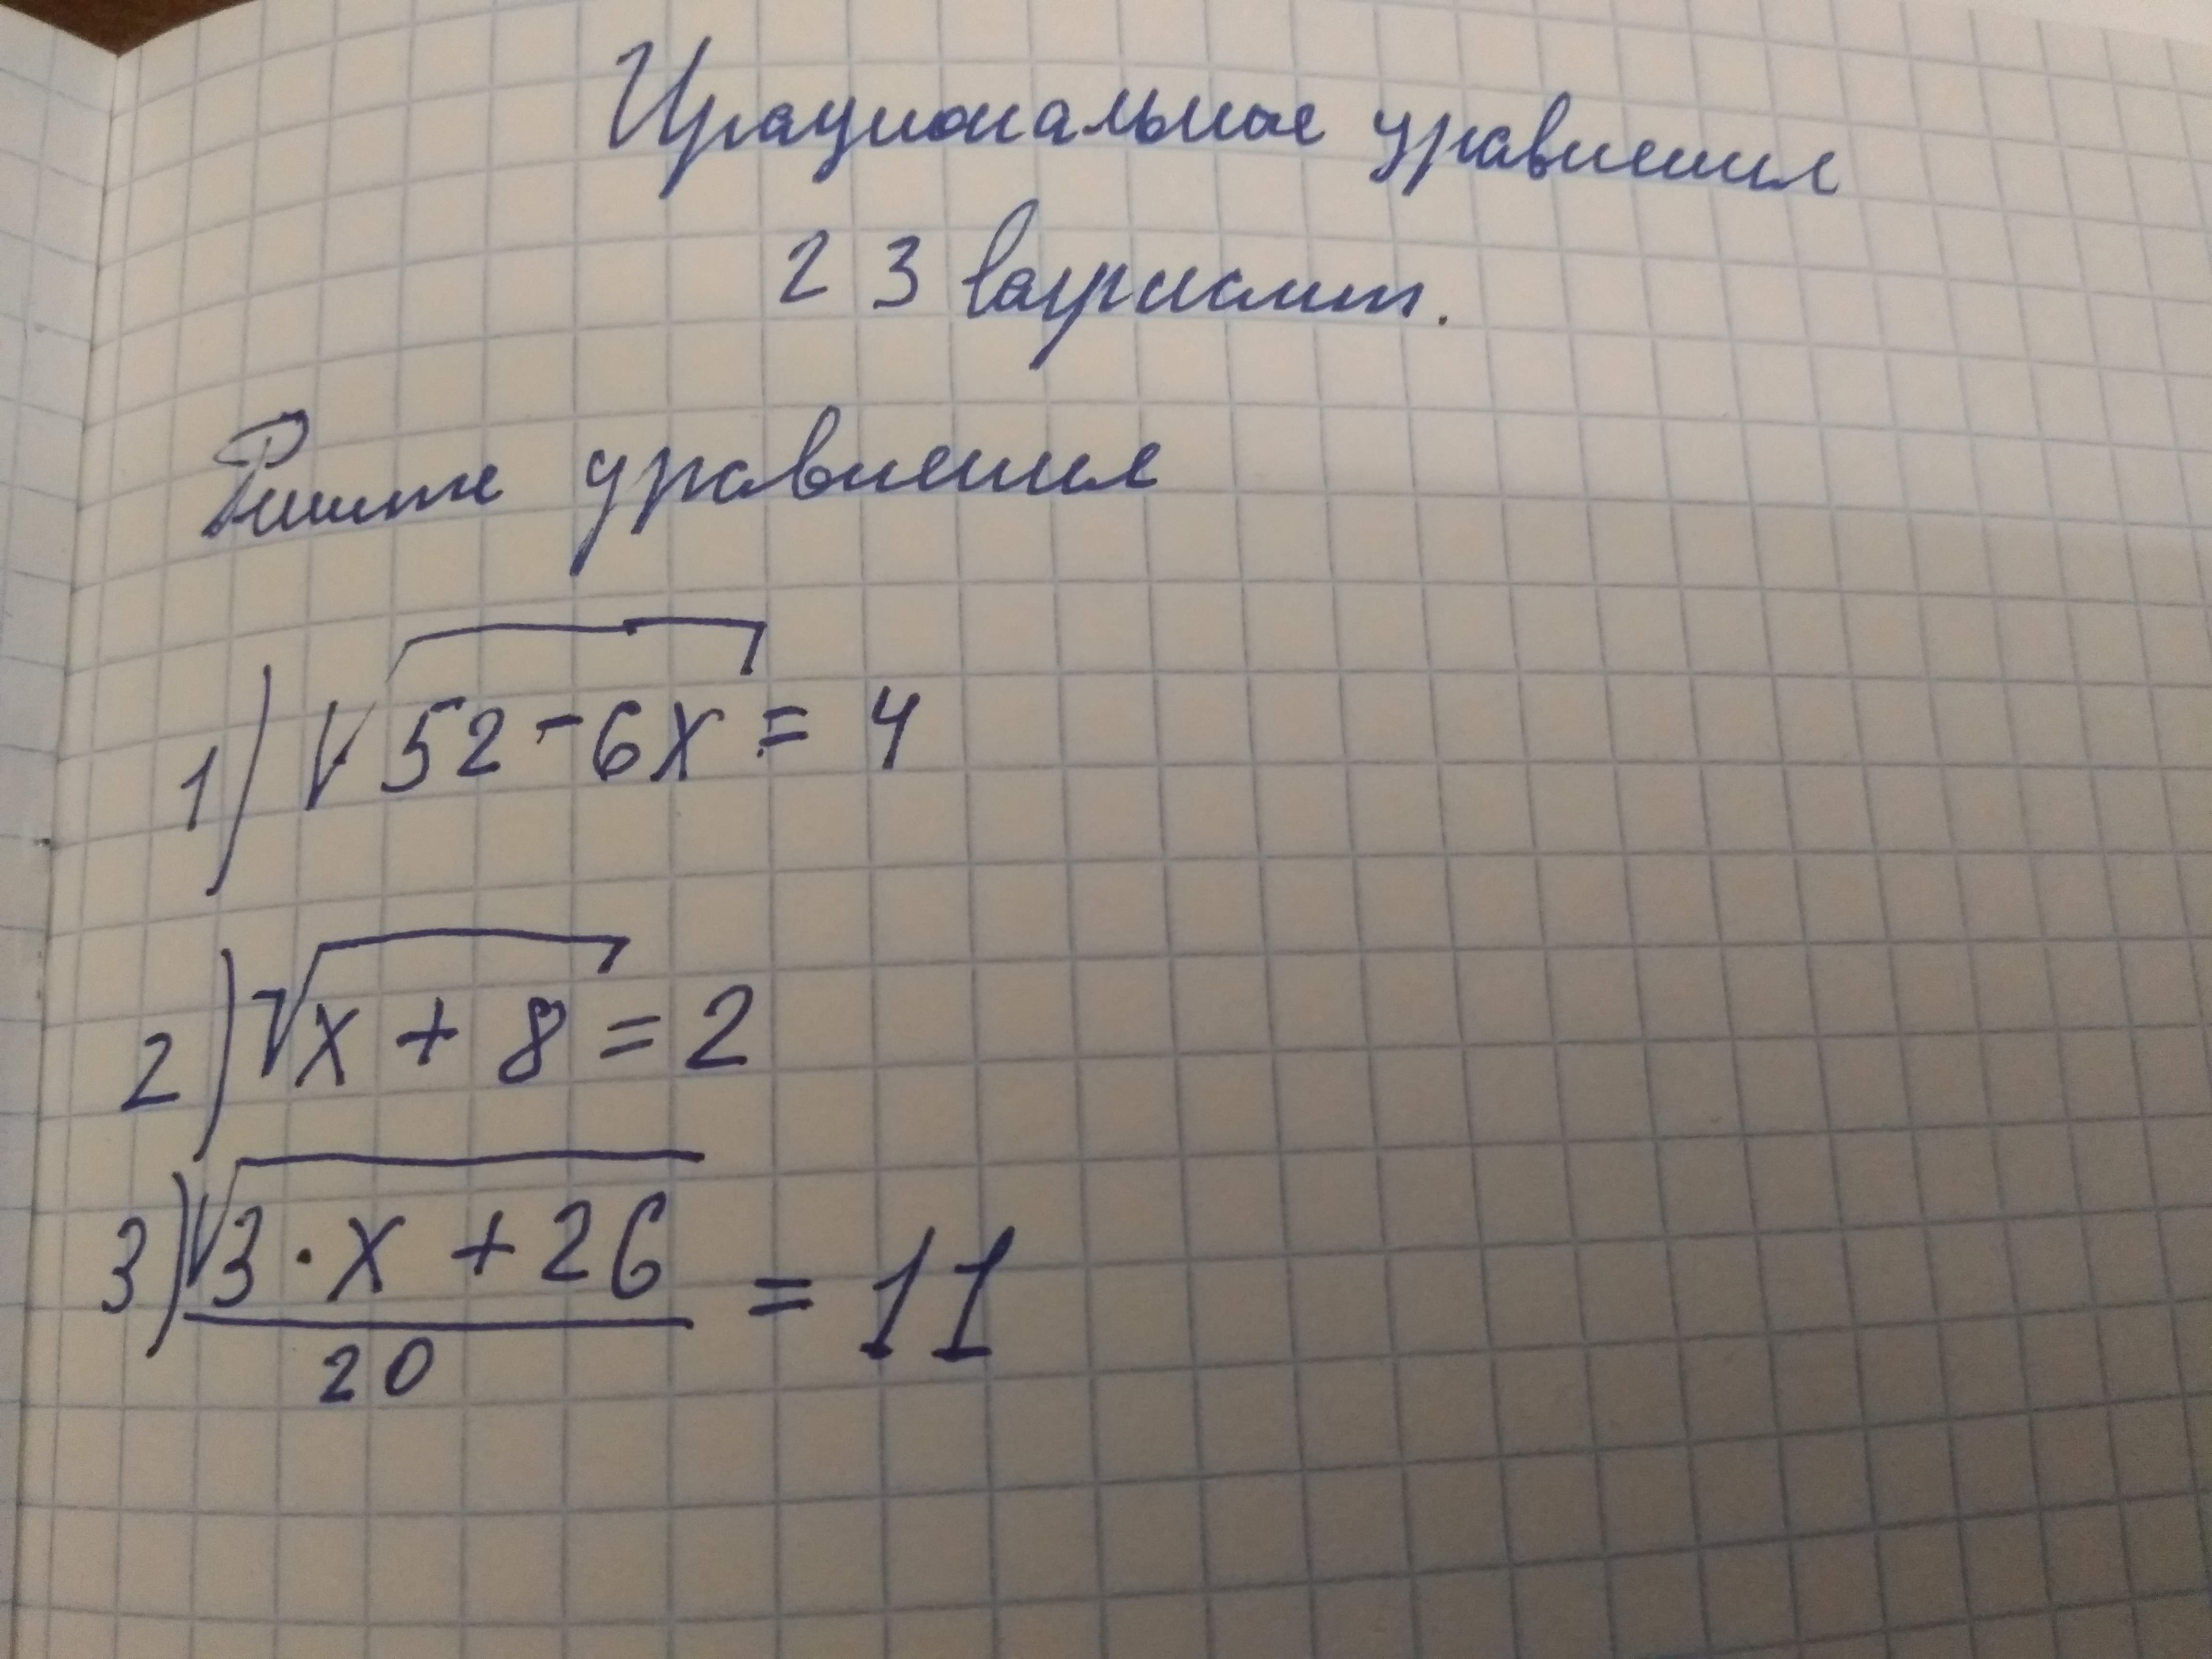 Ирациональные уравнения
23 вариант.
Решите уравнения
1) √52-6x = 4
2) √x + 8 = 2
3) √3·x + 26
20
= 11